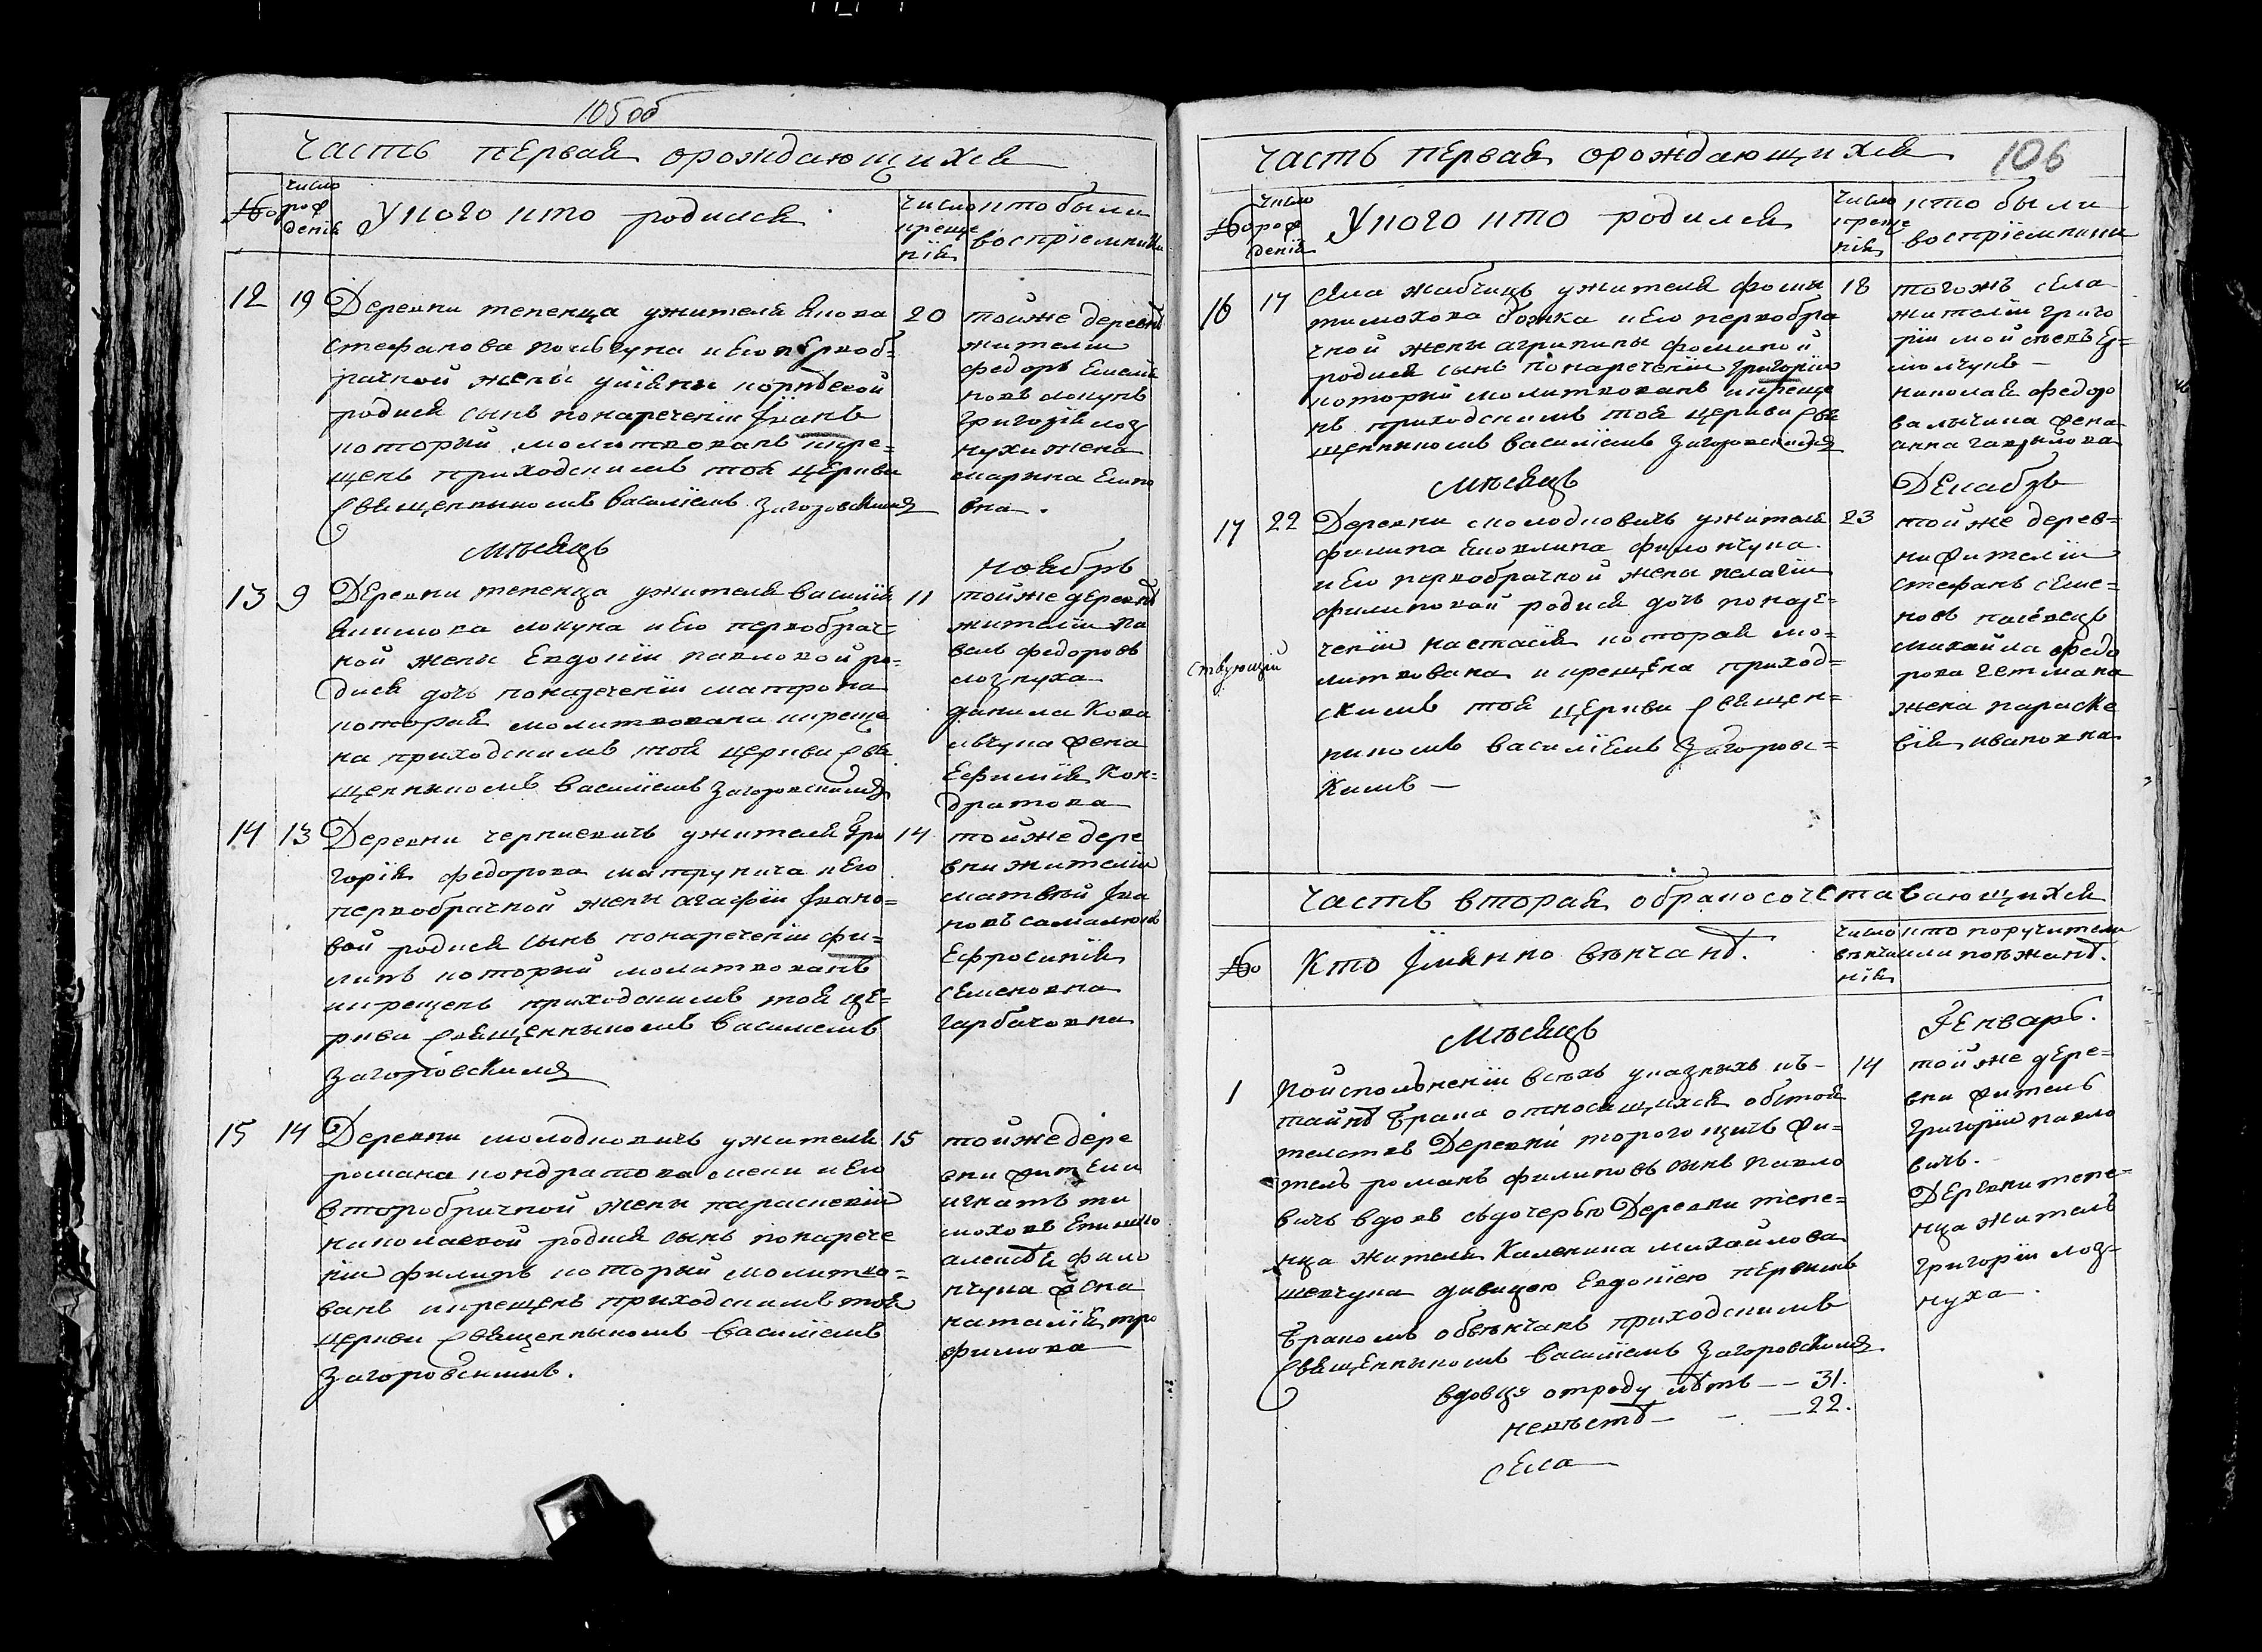 105 об
Часть первая орождающихся
№о
число рождения
У кого кто родился
число крещенія
кто были воспріемники
12 19 Деревни тепенца ужителя Якова
Стефанова и Его первоб=
рачной жены корнѣевой
родися сынъ понаречении Іванъ
которій молитвованъ икре=
щенъ приходскимъ той церкви
Священникомъ Василіемъ Загоровскимъ
20 тойже деревни
жители
федоръ Емелія
новъ локунъ
григорій лоз
нуха жена
марина Еимо
вна.
Мѣсяцъ Ноябръ
13 9 Деревни тепенца ужителя василія
Якимова локуна и Его первобрач=
ной жены Евдокіи павловой ро=
дися дочь понареченіи матрона
которая молитвована икреще
на приходскимъ той церкви Свя
щенникомъ Василіемъ Загоровскимъ
11 тойже деревни
жители па
велъ федоровъ
лознуха
данила Кова
льчука жена
Ефимія Кон=
дратова
14 13 Деревни черниевичь ужителя Гри
горія федорова матрунича и Его
первобрачной жены агафіи Івано=
вой родися сынъ понареченіи фи=
липъ которій молитвованъ
икрещенъ приходскимъ той це=
ркви Священникомъ Василіемъ
Загоровскимъ
14 тойже дере
вни жители
матвѣй Іва
новъ
Ефросинія
семеновна
гарбачовна
15 14 Деревни молодковичь ужителя
романа кондратова и Его
второбрачной жены параскевіи
николаевой родися сынъ понарече
ніи филипъ которій молитво=
ванъ икрещенъ приходскимъ той
церкви Священникомъ Василіемъ
Загоровскимъ.
15 тойже дере
вни жители
игнатъ ти
моховъ
алексѣя фило
нчука жена
наталія тро
фимова
Часть первая орождающихся 106
№о
число рожденія
У кого кто родился
число крещенія
кто были воспріемники
16 17 Села жабчицъ ужителя фомы
тимохова божка и Его первобра
чной жены агрипины фоминой
родися сынъ понареченіи григорій
которій молитвованъ икреще
нъ приходскимъ той церкви Свя
щенникомъ Василіемъ Загоровскимъ
18 тогожъ села
жители григо
рій
николая федоро
ва жена
анна гаврилова
Мѣсяцъ Декабръ
17 22 Деревни молодковичь ужителя
филипа Яковлина филончука
и Его первобрачной жены пелагіи
филиповой родися дочь понаре=
ченіи настасія которая мо=
литвована и крещена приход=
скимъ той церкви Священ=
никомъ Василіемъ Загоровс=
кимъ —
ствующій
23 тойже дерев=
ни жители
стефанъ семе=
новъ
михайла федо
рова гетмана
жена параске
вія ивановна
Часть вторая обракосочетавающихся
№о
Кто Імянно вѣнчанѣ.
число вѣнчанія
кто поручители или поѣжанѣ.
Мѣсяцъ Генваръ.
1 Поисполненіи всѣхъ указныхъ къ=
тайнѣ брака относящихся обстоя
телствъ Деревни торогощичь жи=
тель романъ филиповъ сынъ павло
вичъ вдовъ съдочерью Деревни тепе=
нца жителя Каленика михайлова
шевчука дивицею Евдокіею первимъ
бракомъ обвѣнчанъ приходскимъ
Священникомъ Василіемъ Загоровскимъ
вдовцу отроду лѣтъ — — 31.
невѣстѣ — — — 22.
села
14 тойже дере=
вни житель
григорій павло
вичъ.
Деревни тепе=
нца житель
григорій лоз=
нуха.